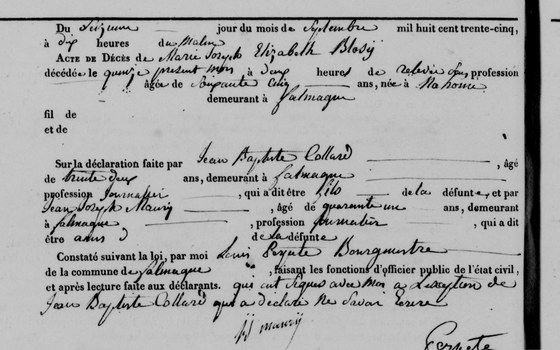 Du Seizieme jour du mois de Septembre mil huit cent trente-cinq,
à dix heures du Matin
ACTE DE DÉCÈS de Marie Joseph Elizabeth Blosy
décédée le quinze présent mois à deux heures de relevée profession
âgée de Soixante cinq ans, née à Nahome
demeurant à falmagne
fil de
et de
Sur la déclaration faite par Jean Baptiste Collard , âgé
de trente deux ans, demeurant à falmagne
profession Journalier , qui a dit être fils de la défunte, et par
Jean Joseph Maurÿ , âgé de quarante un ans, demeurant
à falmagne , profession journalier , qui a dit
être amis de la défunte
Constaté suivant la loi, par moi Louis Bourgmestre
de la commune de falmagne , faisant les fonctions d'officier public de l'état civil,
et après lecture faite aux déclarants. qui ont Signés avec moi a Lexeption de
Jean Baptiste Collard qui a déclaré ne Savoir Ecrire
jj maurÿ